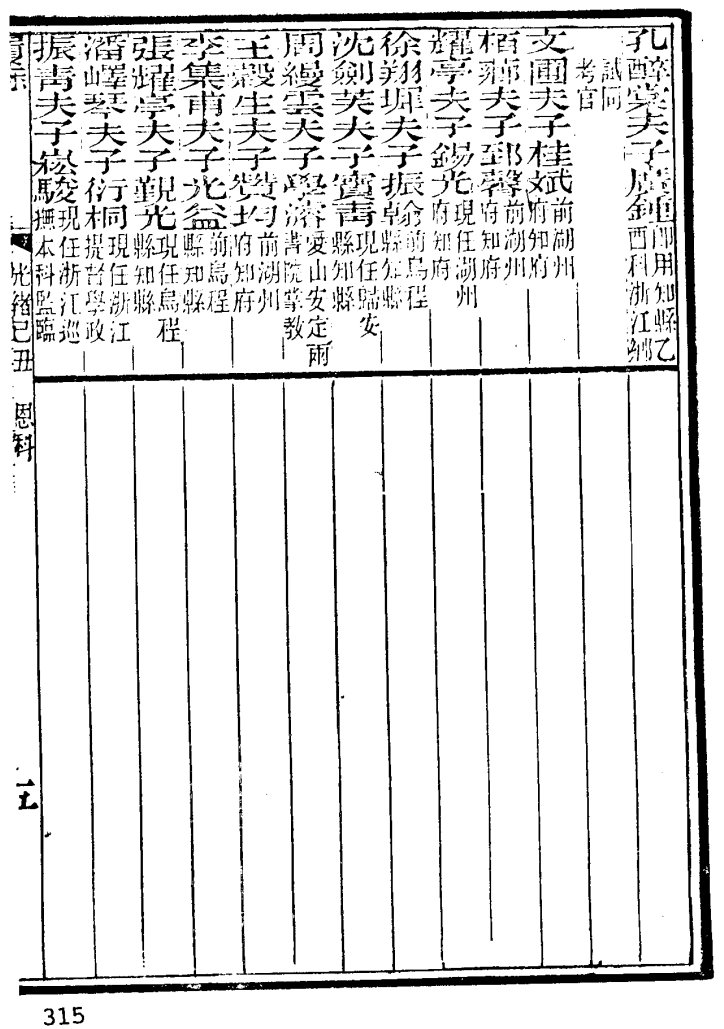 孔醉棠夫子廣鍾 即用知縣乙酉科浙江鄉
試同考官
文圃夫子桂斌 前湖州府知府
夫子郅馨 前湖州府知府
燿亭夫子錫光 現任湖州府知府
徐翔墀夫子振翰 前烏程縣知縣
沈劍芙夫子寶青 現任瑞安縣知縣
周縵雲夫子學濬 愛山安定兩書院掌教
王穀生夫子贊均 前湖州府知府
李集甫夫子光益 前烏程縣知縣
張燿亭夫子覲光 現任烏程縣知縣
潘嶧琴夫子衍桐 現任浙江提督學政
振青夫子崧駿 現任浙江巡撫本科監臨
光緒己丑 恩科
315